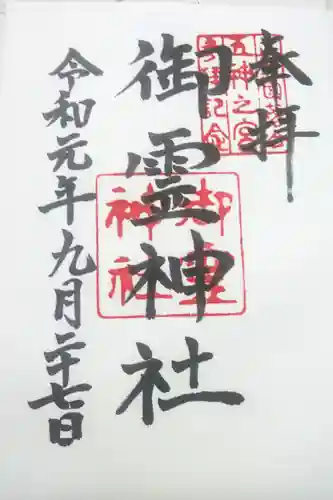 奉拝
五神之宮
記念
御霊神社
御霊
神社
令和元年九月二十七日